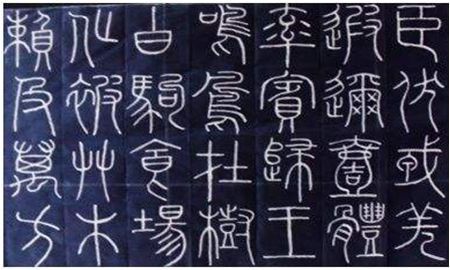 臣伏戎羌
遐邇壹體
率賓歸王
鳴鳳在樹
白駒食場
化被艸木
賴及萬方